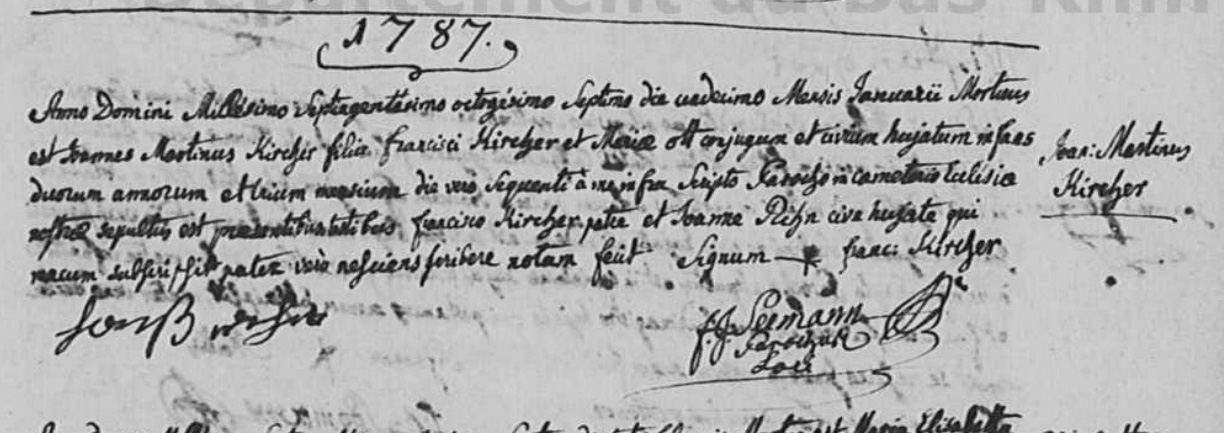 Département du Bas-Rhin
1787.
Anno Domini Millesimo Septingentesimo octogesimo Septimo die undecimo Mensis Januarii Mortuus
est Joannes Martinus Kircher filius francisci Kircher et Mariæ ott conjugum et civium hujatum infans
duorum annorum et trium mensium die vero sequenti à me infra Scripto Parocho in cœmeterio Ecclesiæ
nostræ sepultus est præsentibus testibus francisco Kircher patre et Joanne Rihn cive hujate qui
mecum subscripsit pater vero nesciens scribere notam fecit Signum + franc: Kircher
Joan: Martinus
Kircher
f.J. Seemann
Parochus
Loci